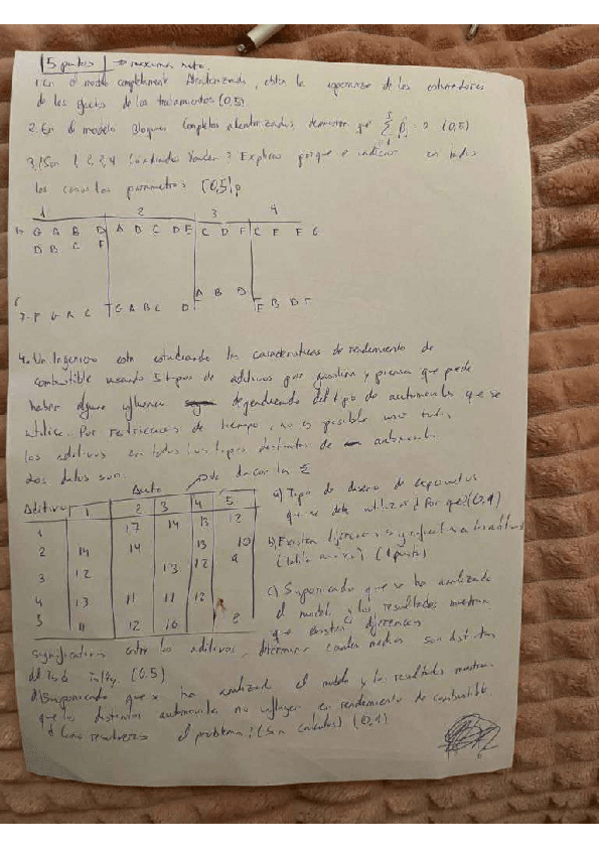 5 puntos → maxima nota.
1. En el modelo completamente Aleatorizado, obtén la esperanza de los estimadores
de los efectos de los tratamientos (0,5).
2. En el modelo Bloques Completos aleatorizados demostrar que Σ = 0 (0,5)
3. ¿Son 1, 2, 3, 4 Cuadrados Youden? Explica porque e indicar en todos
los casos los parametros (0,5)
1 2 3 4
G A B D A B C D E C D F C E F G
D B C F
A B D
F G A C G A B C D F B D F
4. Un Ingeniero esta estudiando las caracteristicas de rendimiento de
combustible usando 5 tipos de aditivos por gasolina y piensa que puede
haber alguna influencia dependiendo del tipo de automovil que se
utilice. Por restricciones de tiempo, no es posible usar todos
los aditivos en todos los tipos distintos de automovil
Los datos son: dacar la Σ
Auto
Aditivo 1 2 3 4 5
1 17 14 13 12
2 14 14 13 10
3 12 13 12 9
4 13 11 11 12
5 11 12 10 8
a) Tipo de diseño de experimentos
que se debe utilizar ¿Por que? (0,4)
b) Existen diferencias significativas aditivos
(1 punto)
c) Suponiendo que se ha analizado
el modelo y los resultados muestran
que existen diferencias
significativas entre los aditivos, determinar cuales medias son distintas
(0,5)
d) Suponiendo que se ha analizado el modelo y los resultados muestran
que los distintos automoviles no influyen en rendimiento de combustible
¿Como resolverias el problema? (Sin calculos) (0,4)